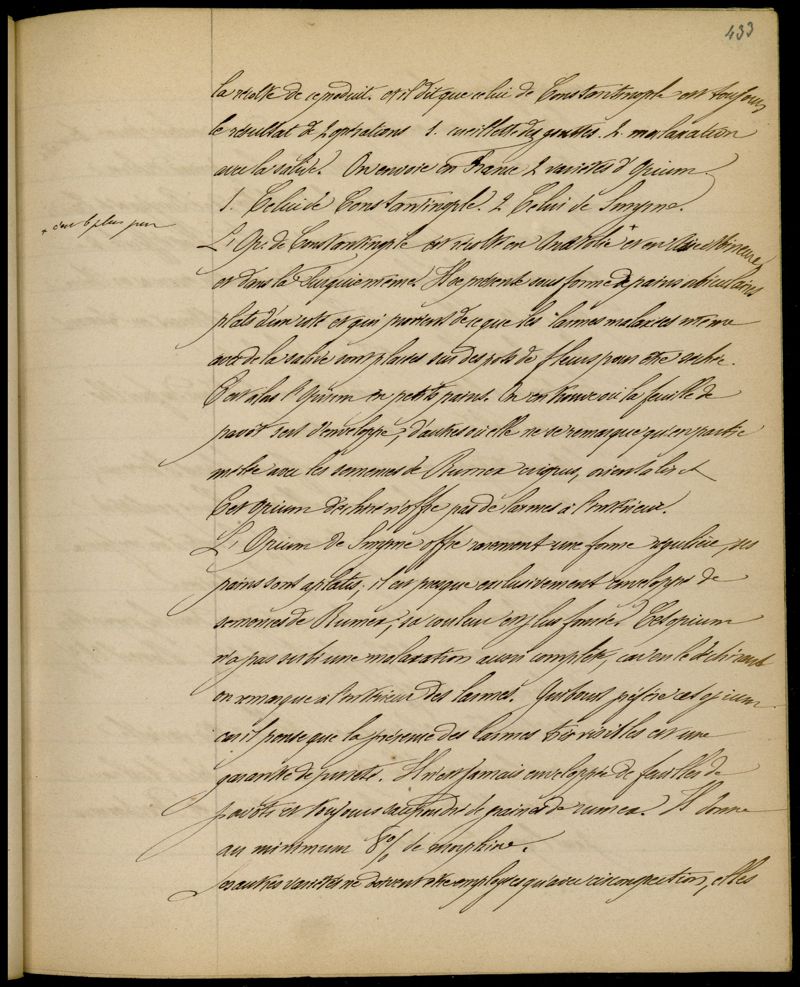 433
la récolte de ce produit. et il dit que celui de Constantinople est toujours
le résultat de 2 opérations 1. cueillette des gouttes. 2. malaxation
avec la salive. On envoie en France 2 variétés d'Opium.
1. Celui de Constantinople. 2 Celui de Smyrne.
+ c'est le plus pur
L'Op. de Constantinople est récolté en Anatolie + et en Asie Mineure,
et dans la Turquie même. Il se présente sous forme de pains orbiculaires
plats d'un côté et qui provient de ce que les larmes malaxées
avec de la salive sont placées sur des pots de fleurs pour être séchées.
C'est alors l'opium en petits pains. On en trouve où la feuille de
pavot sert d'enveloppe, d'autres où elle ne se remarque qu'en partie
mêlée avec les semences de Rumex crispus, orientalis &
Cet opium déchiré n'offre pas de larmes à l'intérieur.
L'Opium de Smyrne offre rarement une forme régulière, ses
pains sont aplatis; il est presque exclusivement enveloppé de
semences de Rumex, sa couleur est plus foncée. Cet opium
n'a pas subi une malaxation aussi complète, car en le déchirant
on remarque à l'intérieur des larmes. Guibourt préfère cet opium
car il pense que la présence des larmes très visibles est une
garantie de pureté. Il n'est jamais enveloppé de feuilles de
pavots et toujours saupoudré de graines de rumex. Il donne
au minimum 8 % de morphine.
Les autres variétés ne doivent être employées qu'avec circonspection, elles